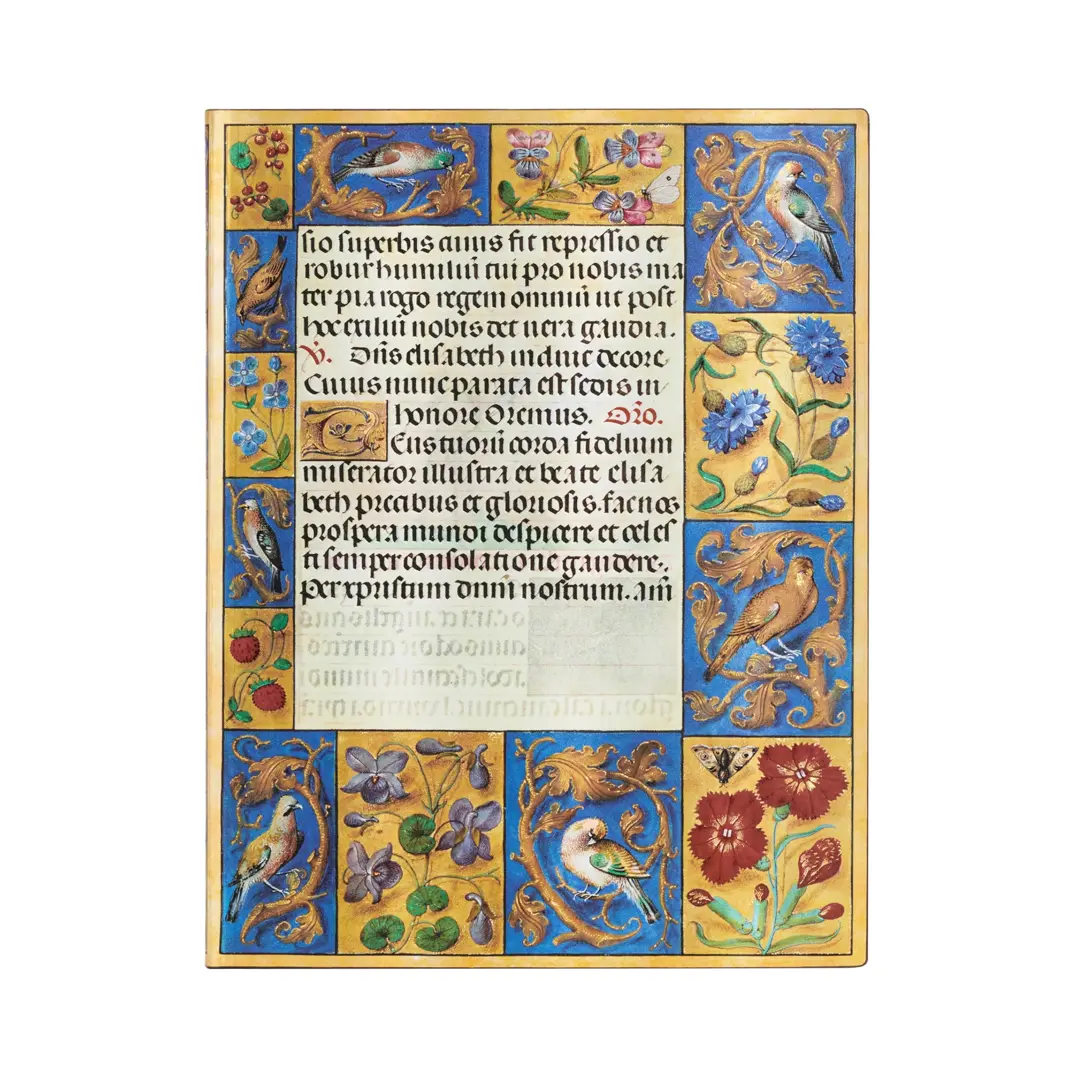 sio superbis cuius fit repressio et
robur humiliū tui pro nobis ma
ter pia rogo regem omniū ut post
hoc exiliū nobis det uera gaudia.
V. Dn̄s elisabeth induit decore
Cuius nunc parata est sedis in
honore Oremus. Orō.
Eus tuorū corda fidelium
miserator illustra et beate elisa
beth precibus et gloriosis. fac nos
prospera mundi despicere et celes
ti semper consolatione gaudere.
Per xp̄istum dnm̄ nostrum. am̄